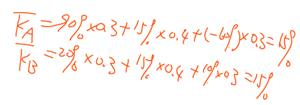 K̅_A = 90% × 0.3 + 15% × 0.4 + (-60%) × 0.3 = 15%
K̅_B = 20% × 0.3 + 15% × 0.4 + 10% × 0.3 = 15%